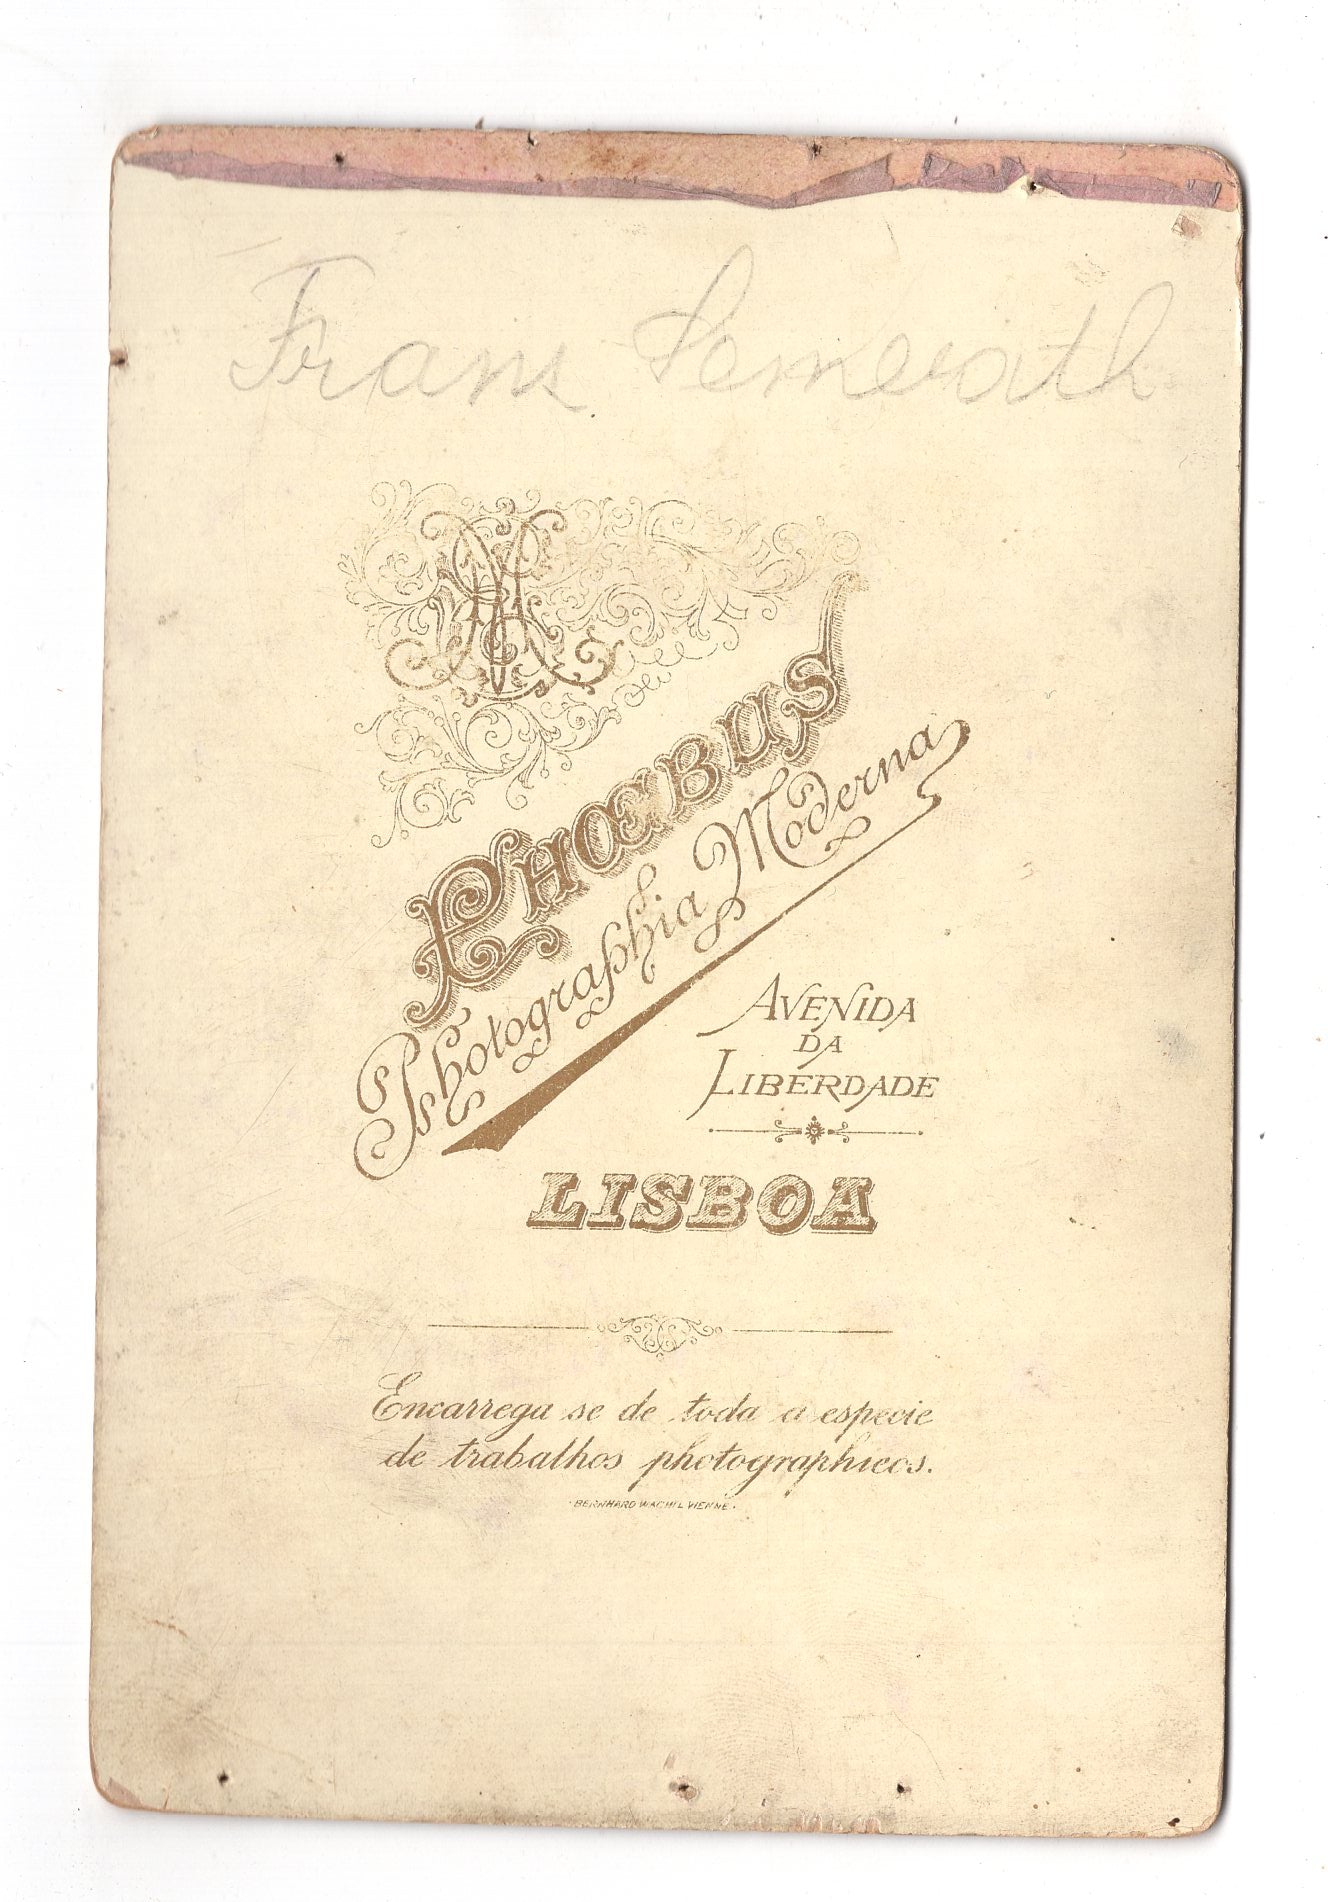 Franz Semerath
PHOEBUS
Photographia Moderna
AVENIDA
DA
LIBERDADE
LISBOA
Encarrega se de toda a especie
de trabalhos photographicos.
BERNHARD WACHTL VIENNE.